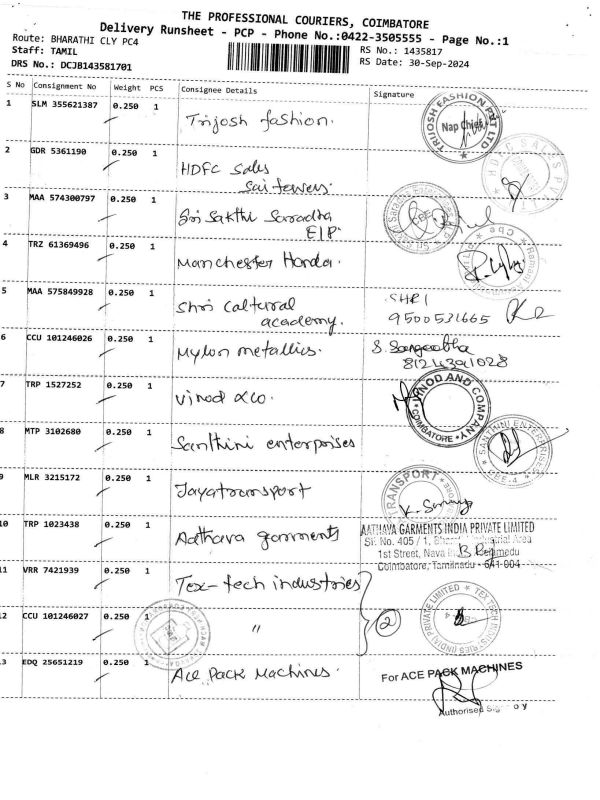 THE PROFESSIONAL COURIERS, COIMBATORE
Delivery Runsheet - PCP - Phone No.:0422-3505555 - Page No.:1
Route: BHARATHI CLY PC4
RS No.: 1435817
Staff: TAMIL
RS Date: 30-Sep-2024
DRS No.: DCJB143581701
S No Consignment No Weight PCS Consignee Details Signature
1 SLM 355621387 0.250 1 Trijosh fashion.
TRIJOSH FASHION PVT LTD
Nap Chief
2 GDR 5361190 0.250 1 HDFC Sales
Sai towers
HDFC SALES PVT
3 MAA 574300797 0.250 1 Sri Sakthi Saradha
EIP.
4 TRZ 61369496 0.250 1 Manchester Honda.
5 MAA 575849928 0.250 1 Shri caltural
academy.
SHRI
9500531665
6 CCU 101246026 0.250 1 Mylon metallics.
S. Sangeetha
81243091028
7 TRP 1527252 0.250 1 Vinod &co.
VINOD AND COMPANY
COIMBATORE
8 MTP 3102680 0.250 1 Santhini enterprises
SANTHINI ENTERPRISES
CBE-4
9 MLR 3215172 0.250 1 Jayatransport
TRANSPORT
10 TRP 1023438 0.250 1 Aathava garments
AATHAVA GARMENTS INDIA PRIVATE LIMITED
SF. No. 405 / 1, Industrial Area
1st Street, Nava
Coimbatore, Tamilnadu - 641 004
11 VRR 7421939 0.250 1 Tex-tech industries
12 CCU 101246027 0.250 1 "
2
TEX TECH INDUSTRIES (INDIA) PRIVATE LIMITED
13 EDQ 25651219 0.250 1 Ace Pack Machines.
For ACE PACK MACHINES
Authorised